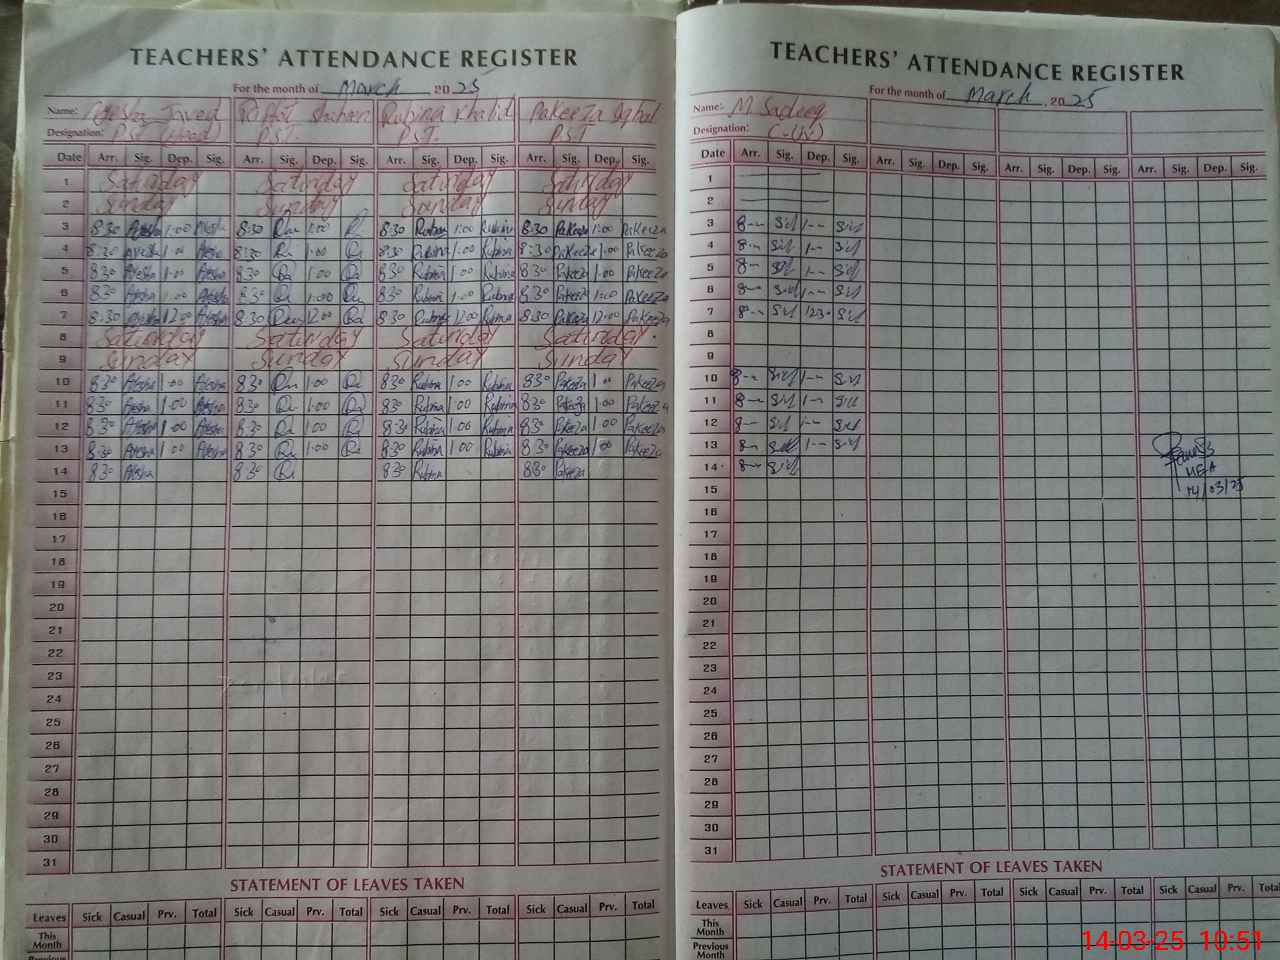 TEACHERS' ATTENDANCE REGISTER
For the month of March 2025
Name: Ayesha Javed Riffat Shaheen Rubina Khalid Pakeeza Iqbal
Designation: P.S.T (Head) P.S.T. P.S.T. P.S.T
Date Arr. Sig. Dep. Sig. Arr. Sig. Dep. Sig. Arr. Sig. Dep. Sig. Arr. Sig. Dep. Sig.
1 Saturday Saturday Saturday Saturday
2 Sunday Sunday Sunday Sunday
3 8:30 1:00 8:30 1:00 8:30 Rubina 1:00 Rubina 8:30 Pakeeza 1:00 Pakeeza
4 8:30 Ayesha 1:00 8:30 1:00 8:30 Rubina 1:00 Rubina 8:30 Pakeeza 1:00 Pakeeza
5 830 1:00 830 1:00 830 Rubina 1:00 Rubina 830 Pakeeza 1:00 Pakeeza
6 830 1:00 830 1:00 830 Rubina 1:00 Rubina 830 Pakeeza 1:00 Pakeeza
7 8:30 12:00 8:30 12:00 8:30 Rubina 12:00 8:30 Pakeeza 12:00 Pakeeza
8 Saturday Saturday Saturday Saturday
9 Sunday Sunday Sunday Sunday
10 830 1:00 830 1:00 830 Rubina 1:00 Rubina 830 Pakeeza 1:00 Pakeeza
11 830 1:00 830 1:00 830 Rubina 1:00 Rubina 830 Pakeeza 1:00 Pakeeza
12 830 1:00 830 1:00 830 Rubina 1:00 Rubina 830 Pakeeza 1:00 Pakeeza
13 830 1:00 830 1:00 830 Rubina 1:00 Rubina 830 Pakeeza 1:00 Pakeeza
14 830 830 830 Rubina 880 Pakeeza
15
16
17
18
19
20
21
22
23
24
25
26
27
28
29
30
31
STATEMENT OF LEAVES TAKEN
Leaves Sick Casual Prv. Total Sick Casual Prv. Total Sick Casual Prv. Total Sick Casual Prv. Total
This Month
Previous
TEACHERS' ATTENDANCE REGISTER
For the month of March, 2025
Name: M Sadeeq
Designation: C-(IV)
Date Arr. Sig. Dep. Sig. Arr. Sig. Dep. Sig. Arr. Sig. Dep. Sig. Arr. Sig. Dep. Sig.
1
2
3 8-- 1--
4 8-- 1--
5 8-- 1--
6 8-- 1--
7 8-- 1230
8
9
10 8-- 1--
11 8-- 1--
12 8-- 1--
13 8-- 1--
14 8--
MEA
14/03/25
15
16
17
18
19
20
21
22
23
24
25
26
27
28
29
30
31
STATEMENT OF LEAVES TAKEN
Leaves Sick Casual Prv. Total Sick Casual Prv. Total Sick Casual Prv. Total Sick Casual Prv. Total
This Month
Previous Month
14-03-25 10:51